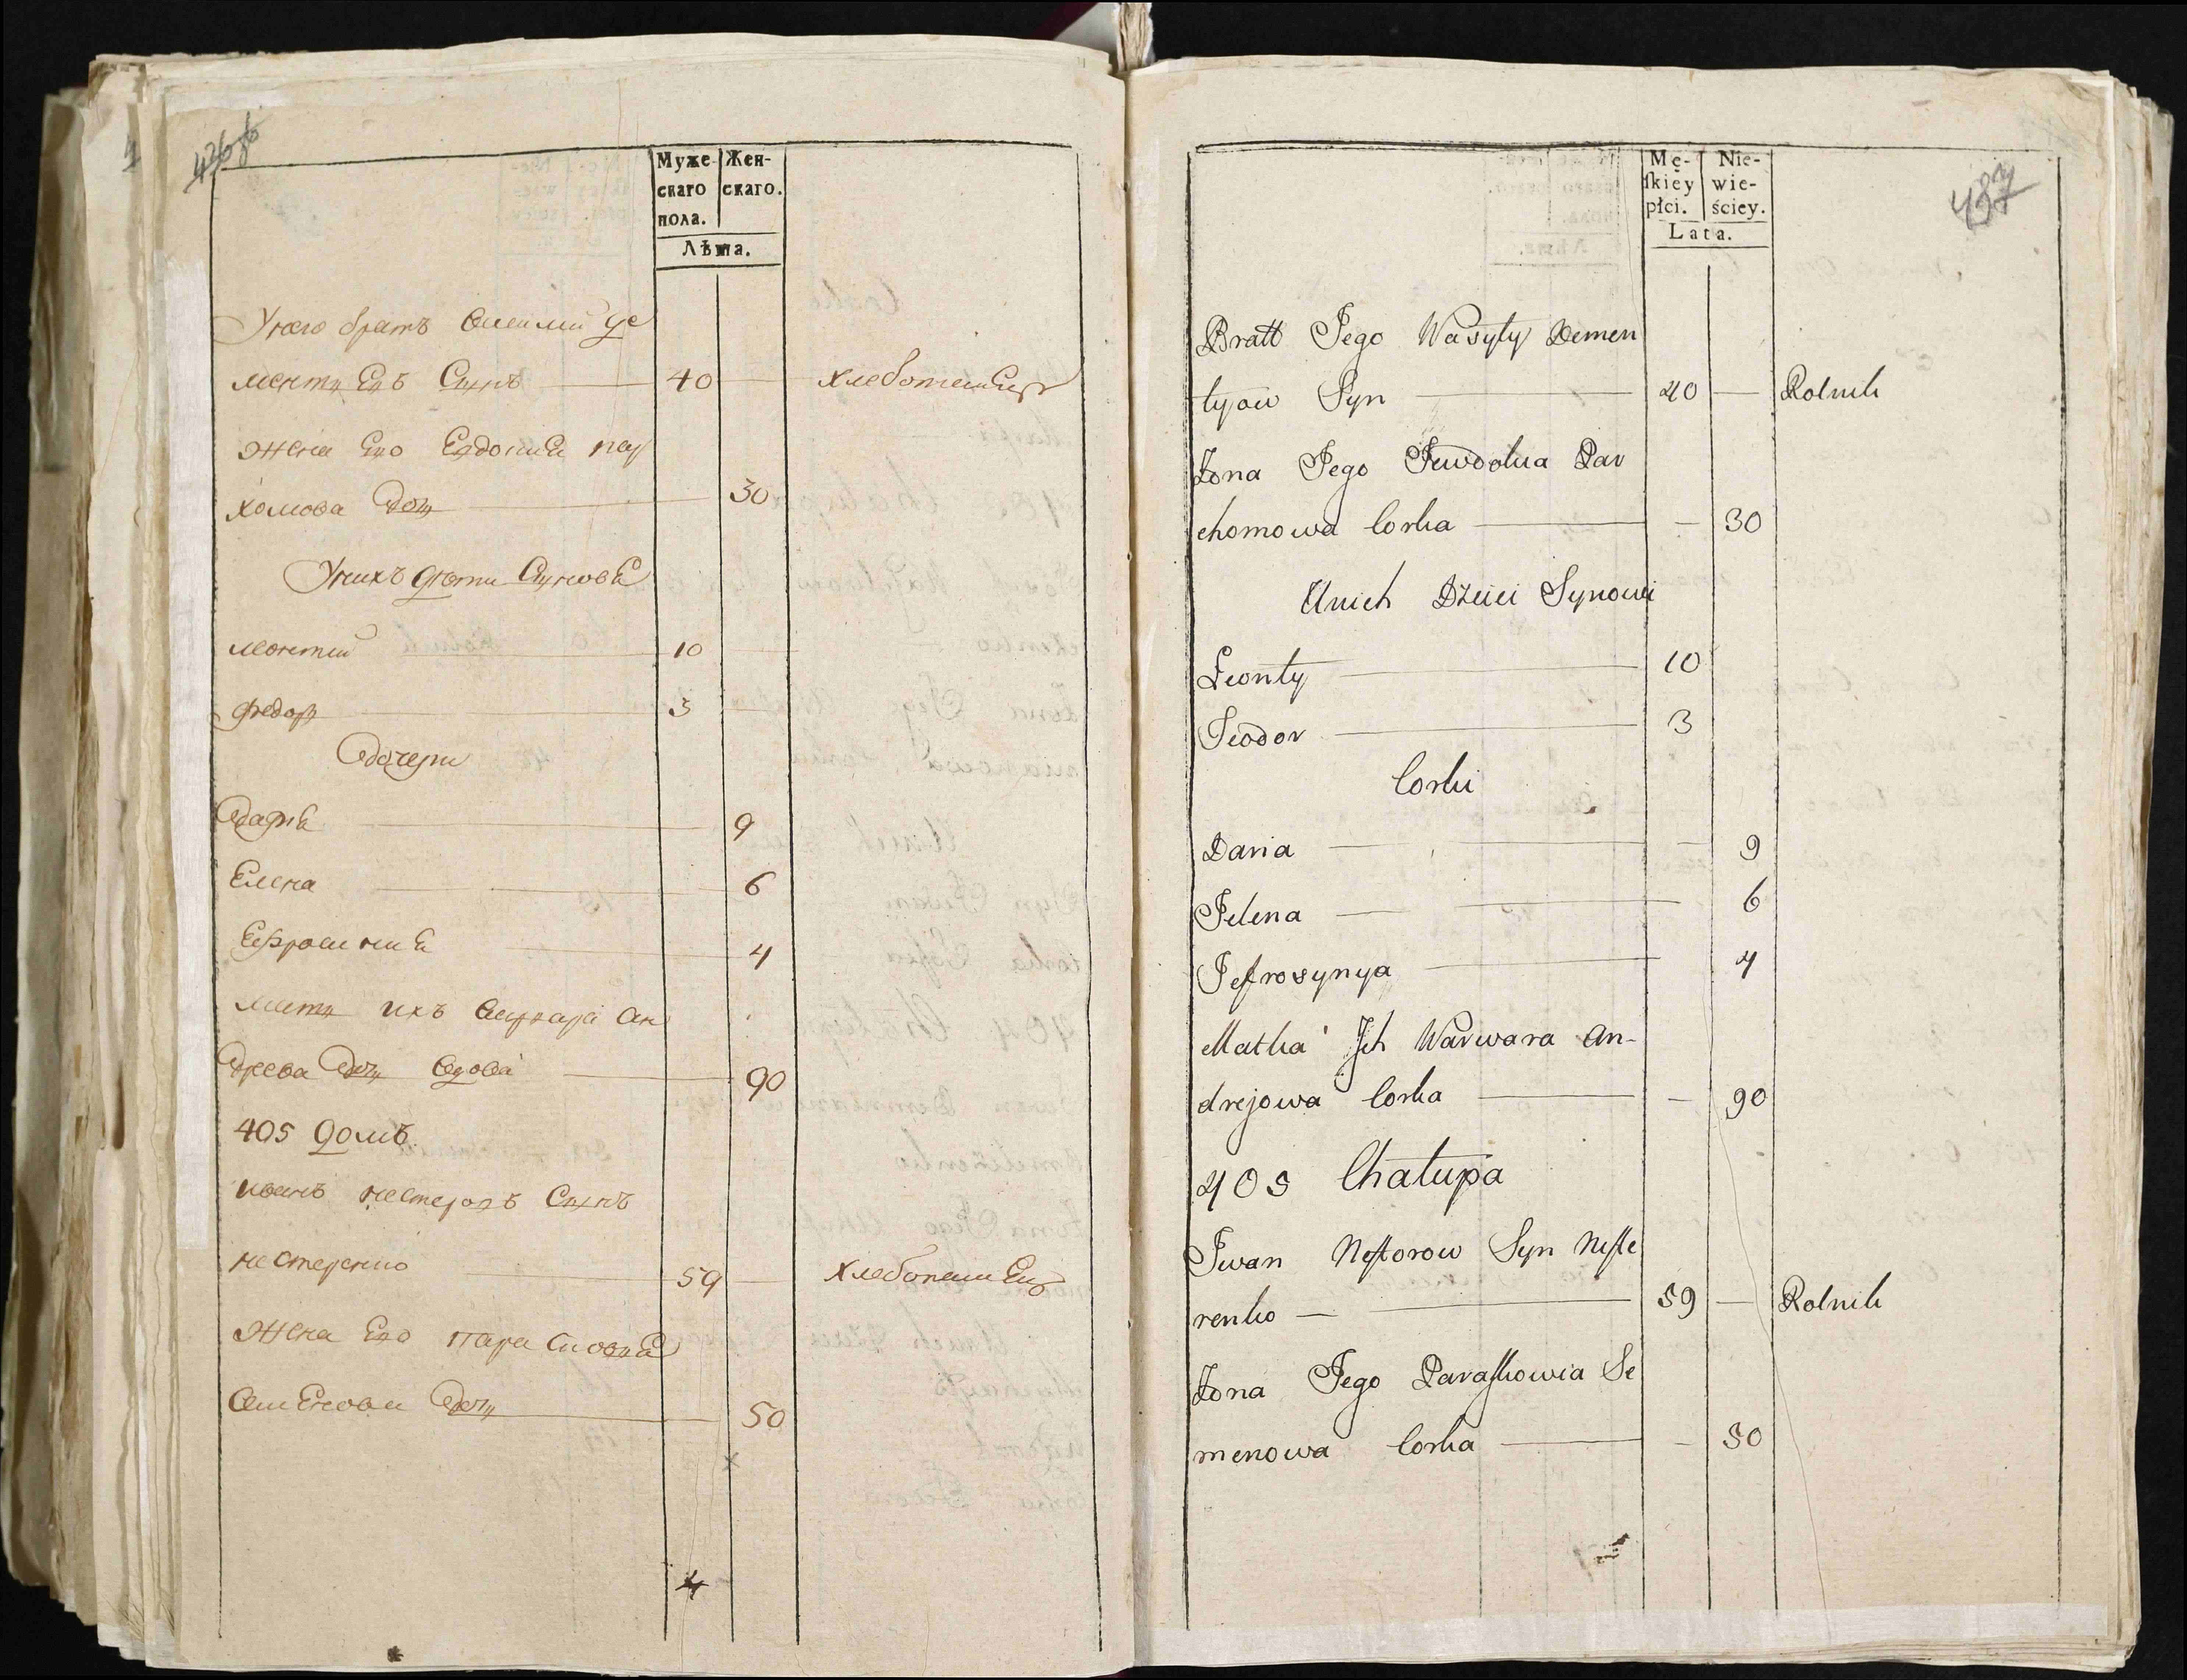 Муже
скаго
пола.
Жен-
скаго.
Лѣта.
Унего братъ василий де
ментиевъ Сынъ — 40 — хлебопашецъ
жена Его Евдокия пар
хомова дочь — 30
Унихъ дѣти Сыновя
леонтий — 10
федоръ — 3
дочери
дария — 9
Елена — 6
Ефросиния — 4
мать ихъ варвара ан
дреева дочь вдова — 90
405 домъ
иванъ нестеровъ Сынъ
нестеренко — 59 — хлебопашецъ
жена Его парасковия
семенова дочь — 50
Mę-
skiey
płci.
Nie-
wie-
ściey.
Lata.
437
Bratt Jego Wasyly Demen
tyow Syn — 40 — Rolnik
Zona Jego Jewdokia Par
chomowa Corka — 30
Unich Dzieci Synowi
Leonty — 10
Feodor — 3
Corki
Daria — 9
Jelena — 6
Jefrosynya — 4
Matka Jch Warwara An-
drejowa Corka — 90
405 Chatupa
Jwan Nestorow Syn Neste
renko — 59 — Rolnik
Zona Jego Paraskowia Se
menowa Corka — 50